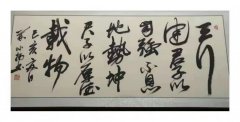 天行
健君子以
自强不息
地势坤
君子以厚德
載物
己亥